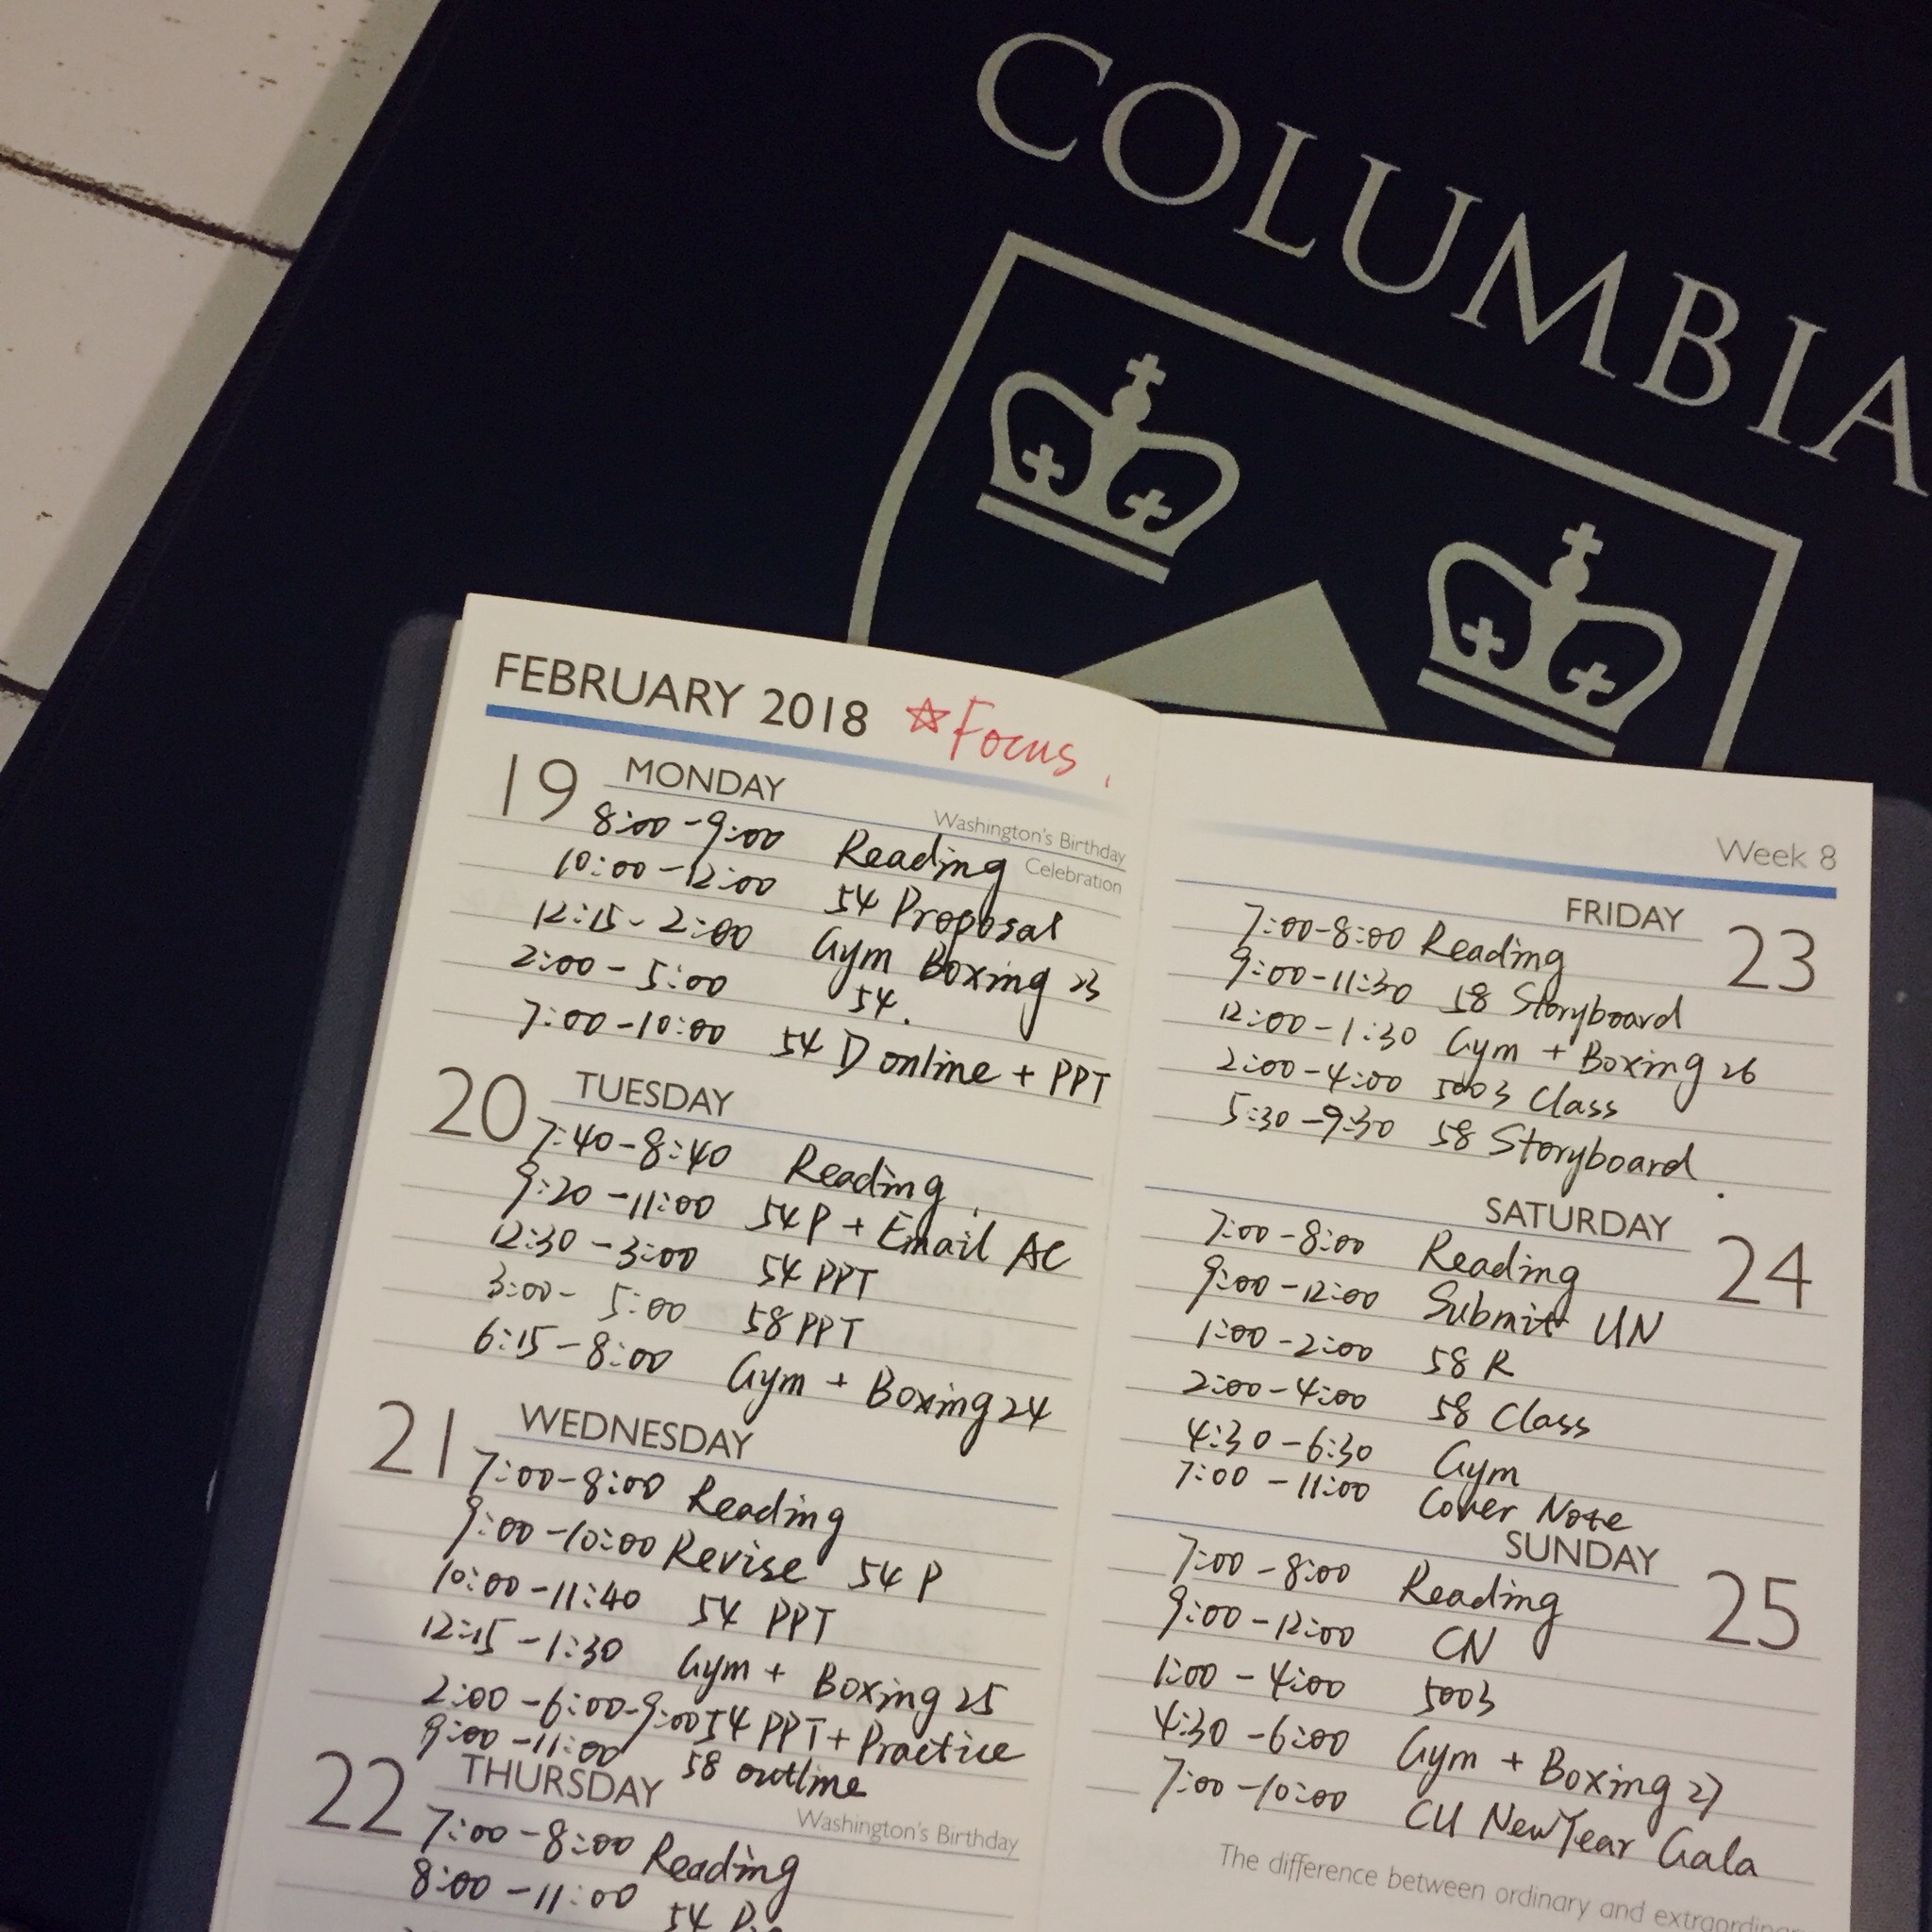 COLUMBIA
FEBRUARY 2018 ☆Focus.
19 MONDAY
Washington's Birthday
Celebration
8:00-9:00 Reading
10:00-12:00 54 Proposal
12:15-2:00 Gym Boxing 23
2:00-5:00 54.
7:00-10:00 54 D online + PPT
20 TUESDAY
7:40-8:40 Reading
9:20-11:00 54P + Email AC
12:30-3:00 54 PPT
3:00-5:00 58 PPT
6:15-8:00 Gym + Boxing 24
21 WEDNESDAY
7:00-8:00 Reading
9:00-10:00 Revise 54 P
10:00-11:40 54 PPT
12:15-1:30 Gym + Boxing 25
2:00-6:00-9:00 54 PPT + Practice
9:00-11:00 58 outline
22 THURSDAY
Washington's Birthday
7:00-8:00 Reading
8:00-11:00 54
Week 8
FRIDAY 23
7:00-8:00 Reading
9:00-11:30 58 Storyboard
12:00-1:30 Gym + Boxing 26
2:00-4:00 5003 Class
5:30-9:30 58 Storyboard.
SATURDAY 24
7:00-8:00 Reading
9:00-12:00 Submit UN
1:00-2:00 58 R
2:00-4:00 58 Class
4:30-6:30 Gym
7:00-11:00 Cover Note
SUNDAY 25
7:00-8:00 Reading
9:00-12:00 CN
1:00-4:00 5003
4:30-6:00 Gym + Boxing 27
7:00-10:00 CU New Year Gala
The difference between ordinary and